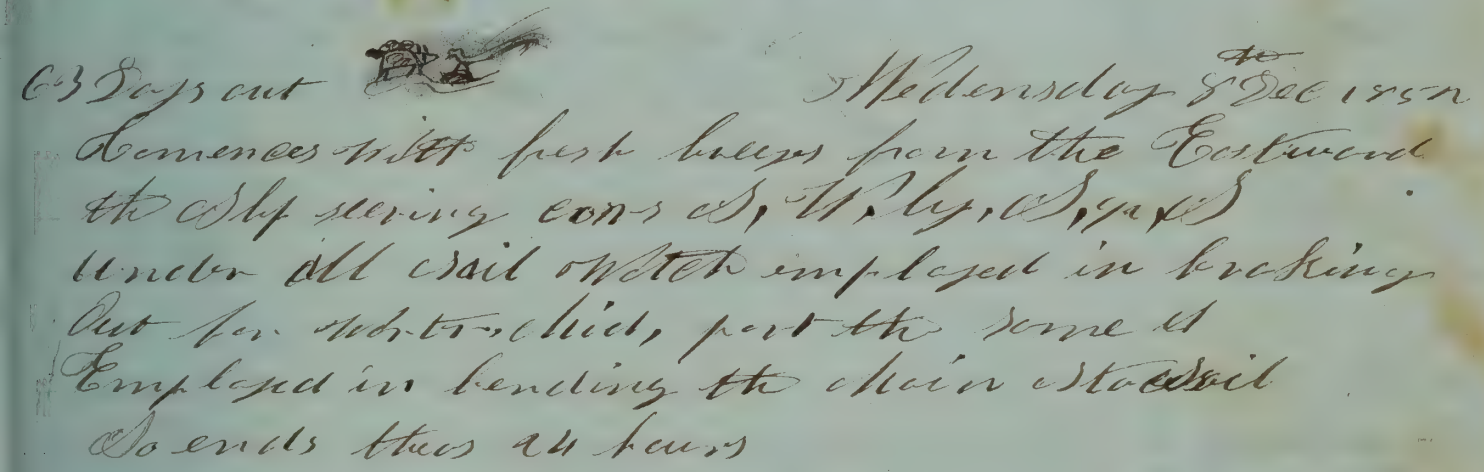 63 Days out Wedensday 8th Dec 1852
Comences with fresh breezs from the Eastward
the Ship steering cors S, W, by, S,
under all Sail Watch employed in braking
Out for Water, Mid, part the same
Employed in bending the Main Staesail
So ends thees 24 hours